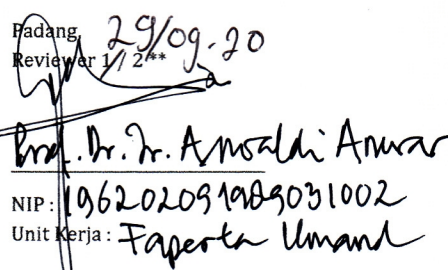 Padang, 29/09-20
Reviewer 1 / 2**
Prof. Dr. Ir. Aswaldi Anwar
NIP : 196202091989031002
Unit Kerja : Faperta Unand